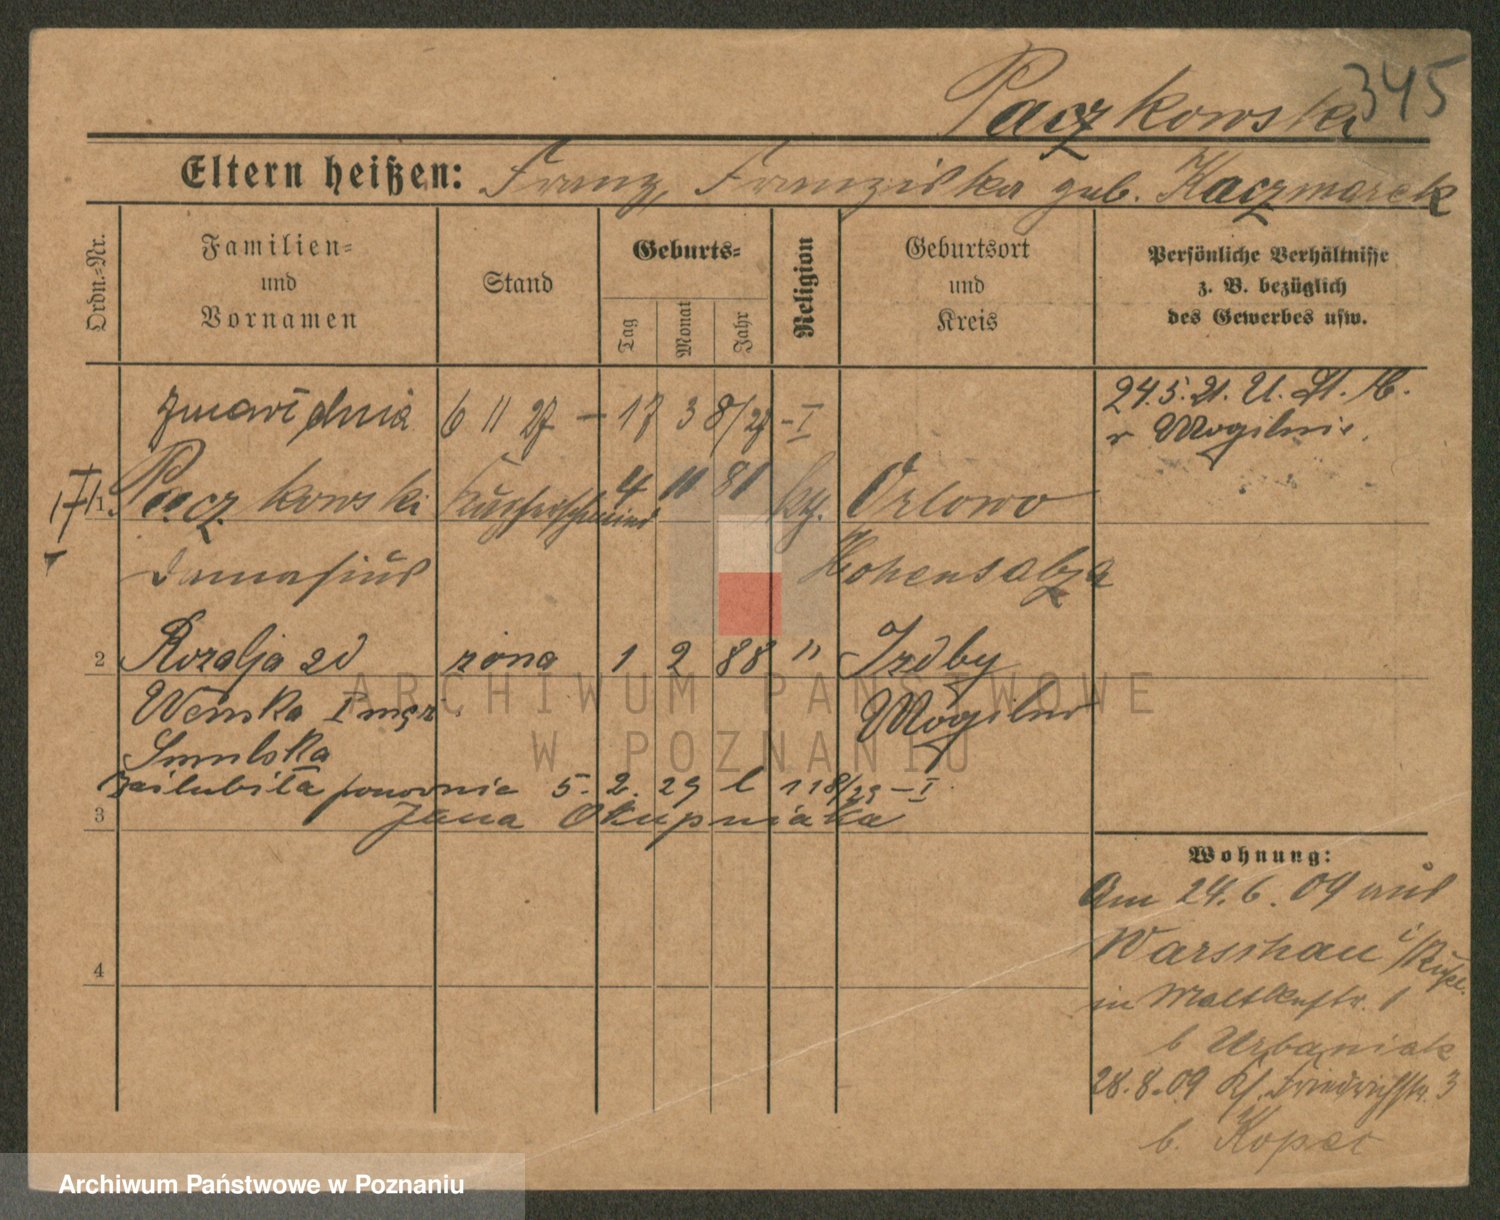 345
Paczkowski
Eltern heißen: Franz, Franziska geb. Kaczmarek
Ordn.=Nr.
Familien=
und
Vornamen
Stand
Geburts=
Tag
Monat
Jahr
Religion
Geburtsort
und
Kreis
Persönliche Verhältnisse
z. B. bezüglich
des Gewerbes usw.
zmarł dnia 6 11 27 – 17 38/27 – I
24.5.21. U. St. C.
v Mogilnie.
1 Paczkowski Kupferschmied 4 11 81 kg. Orlowo
Damasius Hohensalza
2 Rozalja zd żona 1 2 88 " Izdby
Wenska I męż. Mogilno
Smulska
zaślubiła ponownie 5. 2. 29 l 118/29 – I
3 Jana Okupniaka
4
Wohnung:
Am 24.6.09 aus
Warschau i/Rußl.
in Moltkestr. 1
b Urbaniak
28.8.09 Friedrichstr. 3
b. Kopec
ARCHIWUM PAŃSTWOWE
W POZNANIU
Archiwum Państwowe w Poznaniu